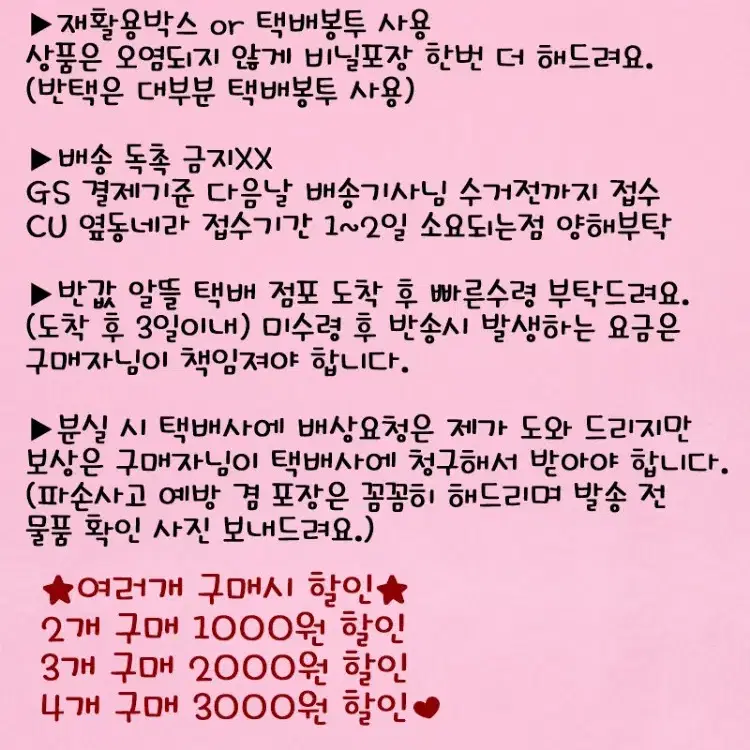 ▶재활용박스 or 택배봉투 사용
상품은 오염되지 않게 비닐포장 한번 더 해드려요.
(반택은 대부분 택배봉투 사용)
▶배송 독촉 금지XX
GS 결제기준 다음날 배송기사님 수거전까지 접수
CU 옆동네라 접수기간 1~2일 소요되는점 양해부탁
▶반값 알뜰 택배 점포 도착 후 빠른수령 부탁드려요.
(도착 후 3일이내) 미수령 후 반송시 발생하는 요금은
구매자님이 책임져야 합니다.
▶분실 시 택배사에 배상요청은 제가 도와 드리지만
보상은 구매자님이 택배사에 청구해서 받아야 합니다.
(파손사고 예방 겸 포장은 꼼꼼히 해드리며 발송 전
물품 확인 사진 보내드려요.)
★여러개 구매시 할인★
2개 구매 1000원 할인
3개 구매 2000원 할인
4개 구매 3000원 할인❤